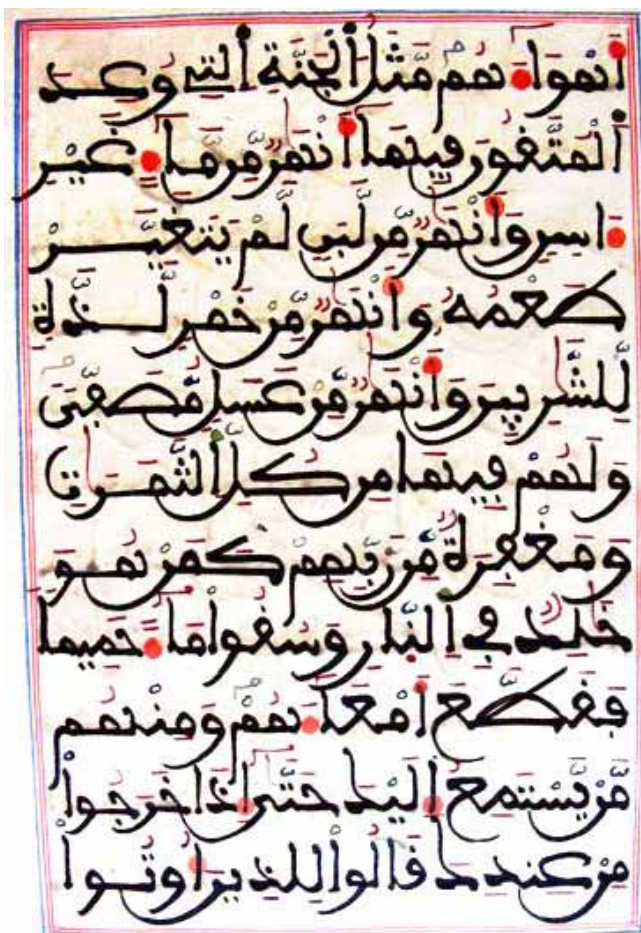 أَهْوَاءَهُم مَّثَلُ اَلْجَنَّةِ اِلتِے وُعِدَ
اَلْمُتَّقُونَ فِيهَا أَنْهَٰرٌ مِّن مَّاءٍ غَيْرِ
ءَاسِنٍ وَأَنْهَٰرٌ مِّن لَّبَنٍ لَّمْ يَتَغَيَّرْ
طَعْمُهُ وَأَنْهَٰرٌ مِّنْ خَمْرٍ لَّذَّةٍ
لِّلشَّٰرِبِينَ وَأَنْهَٰرٌ مِّنْ عَسَلٍ مُّصَفًّى
وَلَهُمْ فِيهَا مِن كُلِّ اِلثَّمَرَٰتِ
وَمَغْفِرَةٌ مِّن رَّبِّهِمْ كَمَنْ هُوَ
خَٰلِدٌ فِے اِلنَّارِ وَسُقُواْ مَاءً حَمِيمًا
فَقَطَّعَ أَمْعَاءَهُمْ وَمِنْهُم
مَّن يَّسْتَمِعُ إِلَيْكَ حَتَّىٰ إِذَا خَرَجُواْ
مِنْ عِندِكَ قَالُواْ لِلذِينَ أُوتُواْ